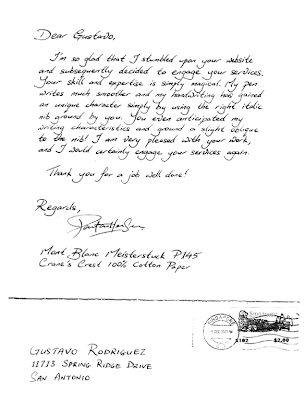 Dear Gustavo,
I'm so glad that I stumbled upon your website
and subsequently decided to engage your services.
Your skill and expertise is simply magical. My pen
writes much smoother and my handwriting has gained
an unique character simply by using the right italic
nib ground by you. You even anticipated my
writing characteristics and ground a slight oblique
to the nib! I am very pleased with your work,
and I would certainly engage your services again.
Thank you for a job well done!
Regards,
Mont Blanc Meisterstuck P145
Crane's Crest 100% Cotton Paper
SINGAPORE
$2.00
GUSTAVO RODRIGUEZ
11713 SPRING RIDGE DRIVE
SAN ANTONIO